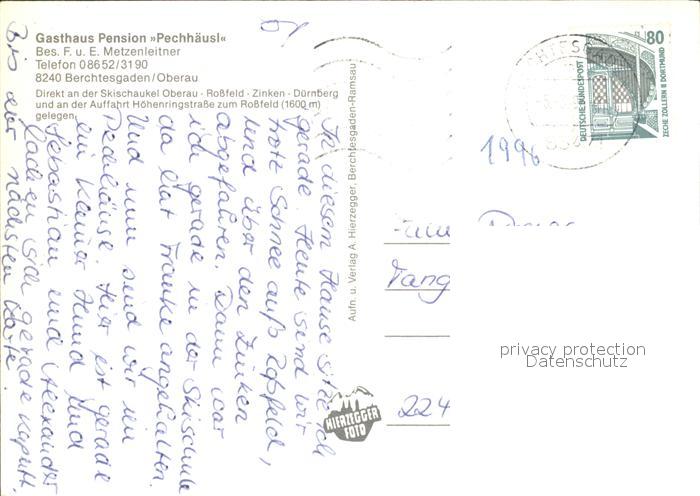 Gasthaus Pension »Pechhäusl«
Bes. F. u. E. Metzenleitner
Telefon 08652/3190
8240 Berchtesgaden/Oberau
Direkt an der Skischaukel Oberau - Roßfeld - Zinken - Dürnberg
und an der Auffahrt Höhenringstraße zum Roßfeld (1600 m)
gelegen.
In diesem Hause sitze ich
gerade. Heute sind wir
trotz Schnee aufs Roßfeld,
und über den Zinken
abgefahren. Dann war
ich gerade in der Skischule
da hat Franke angehalten.
Und nun sind wir im
Pechhäusl. Hier ist gerade
ein kleiner Hund und
Sebastian und Alexander
lachen sich gerade kaputt.
Bis zur nächsten Karte!
Aufn. u. Verlag A. Hierzegger, Berchtesgaden-Ramsau
HIERZEGGER
FOTO
80
DEUTSCHE BUNDESPOST
ZECHE ZOLLERN II DORTMUND
1996
Tang
224
privacy protection
Datenschutz